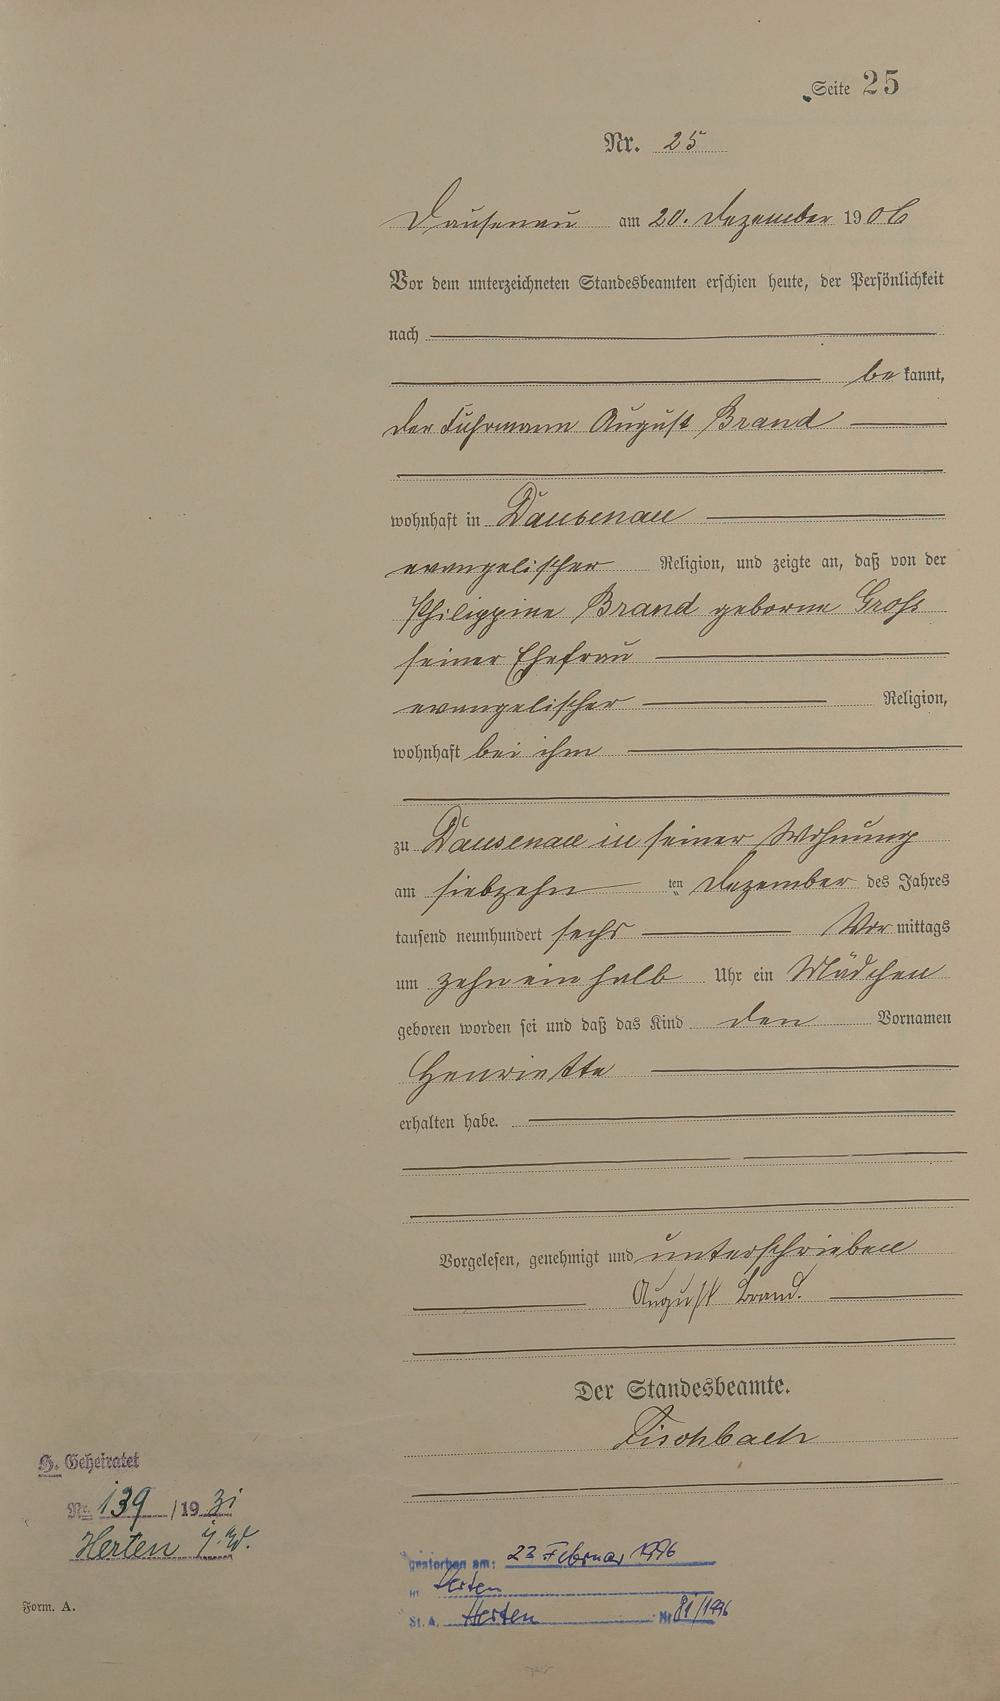 Seite 25
Nr. 25
Dausenau am 20. Dezember 1906
Vor dem unterzeichneten Standesbeamten erschien heute, der Persönlichkeit
nach
bekannt,
der Fuhrmann August Brand
wohnhaft in Dausenau
evangelischer Religion, und zeigte an, daß von der
Philippine Brand geborne Groß
seiner Ehefrau
evangelischer Religion,
wohnhaft bei ihm
zu Dausenau in seiner Wohnung
am siebzehn ten Dezember des Jahres
tausend neunhundert sechs Vormittags
um zehn ein halb Uhr ein Mädchen
geboren worden sei und daß das Kind den Vornamen
Henriette
erhalten habe.
Vorgelesen, genehmigt und unterschrieben
August Brand.
Der Standesbeamte.
Fischbach
H. Geheiratet
Nr. 139 / 1931
Herten i. W.
gestorben am: 23 Februar 1996
in Herten
St. A. Herten Nr 81/1996
Form. A.